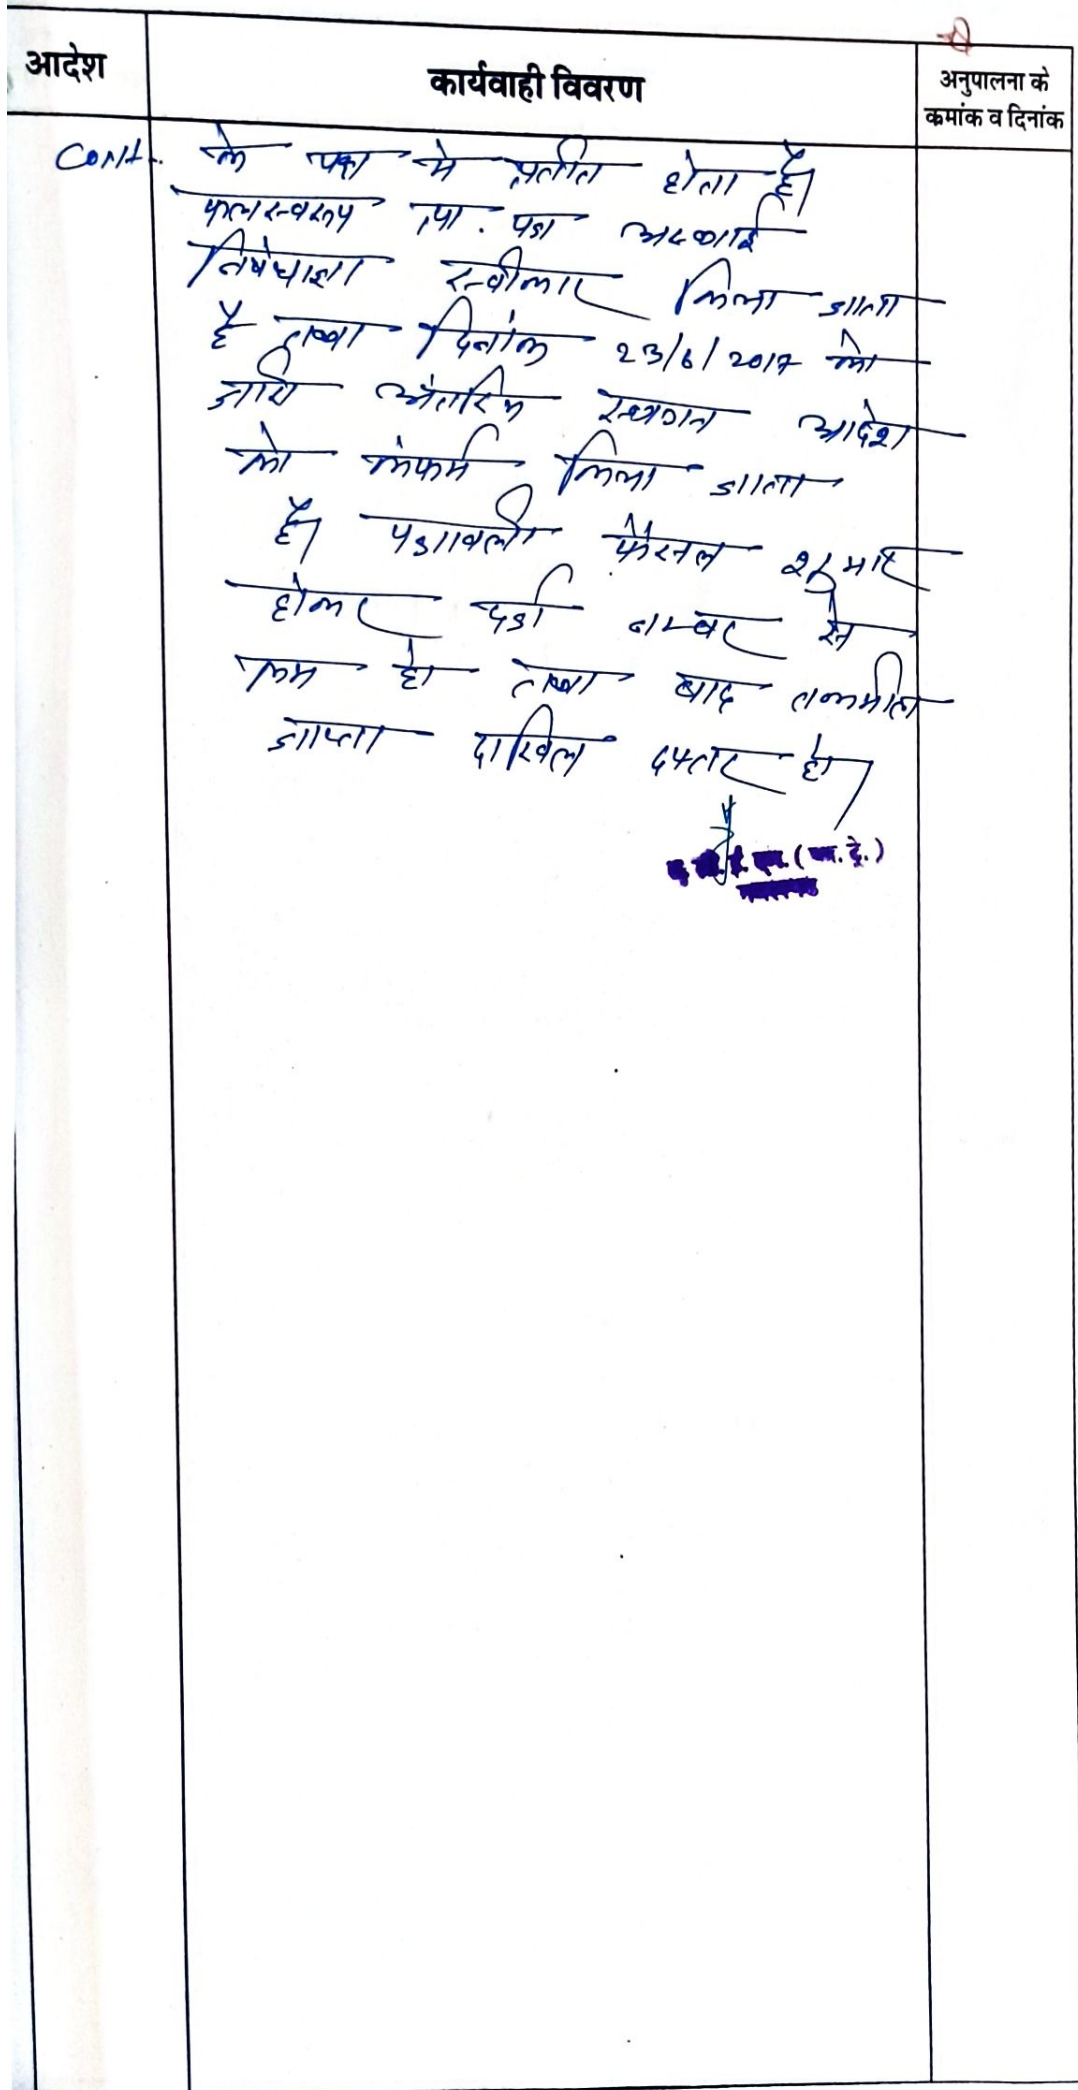 आदेश
कार्यवाही विवरण
अनुपालना के
कमांक व दिनांक
Cont.
के पक्ष मे प्रतीत होता है।
फलस्वरूप प्रा. पत्र अस्थाई
निषेधाज्ञा स्वीकार किया जाता
है तथा दिनांक 23/6/2017 को
जारी अंतरिम स्थगन आदेश
को कंफर्म किया जाता
है। पत्रावली फैसल शुमार
होकर दर्ज नम्बर से
कम हो तथा बाद तकमील
जाप्ता दाखिल दफ्तर हो।